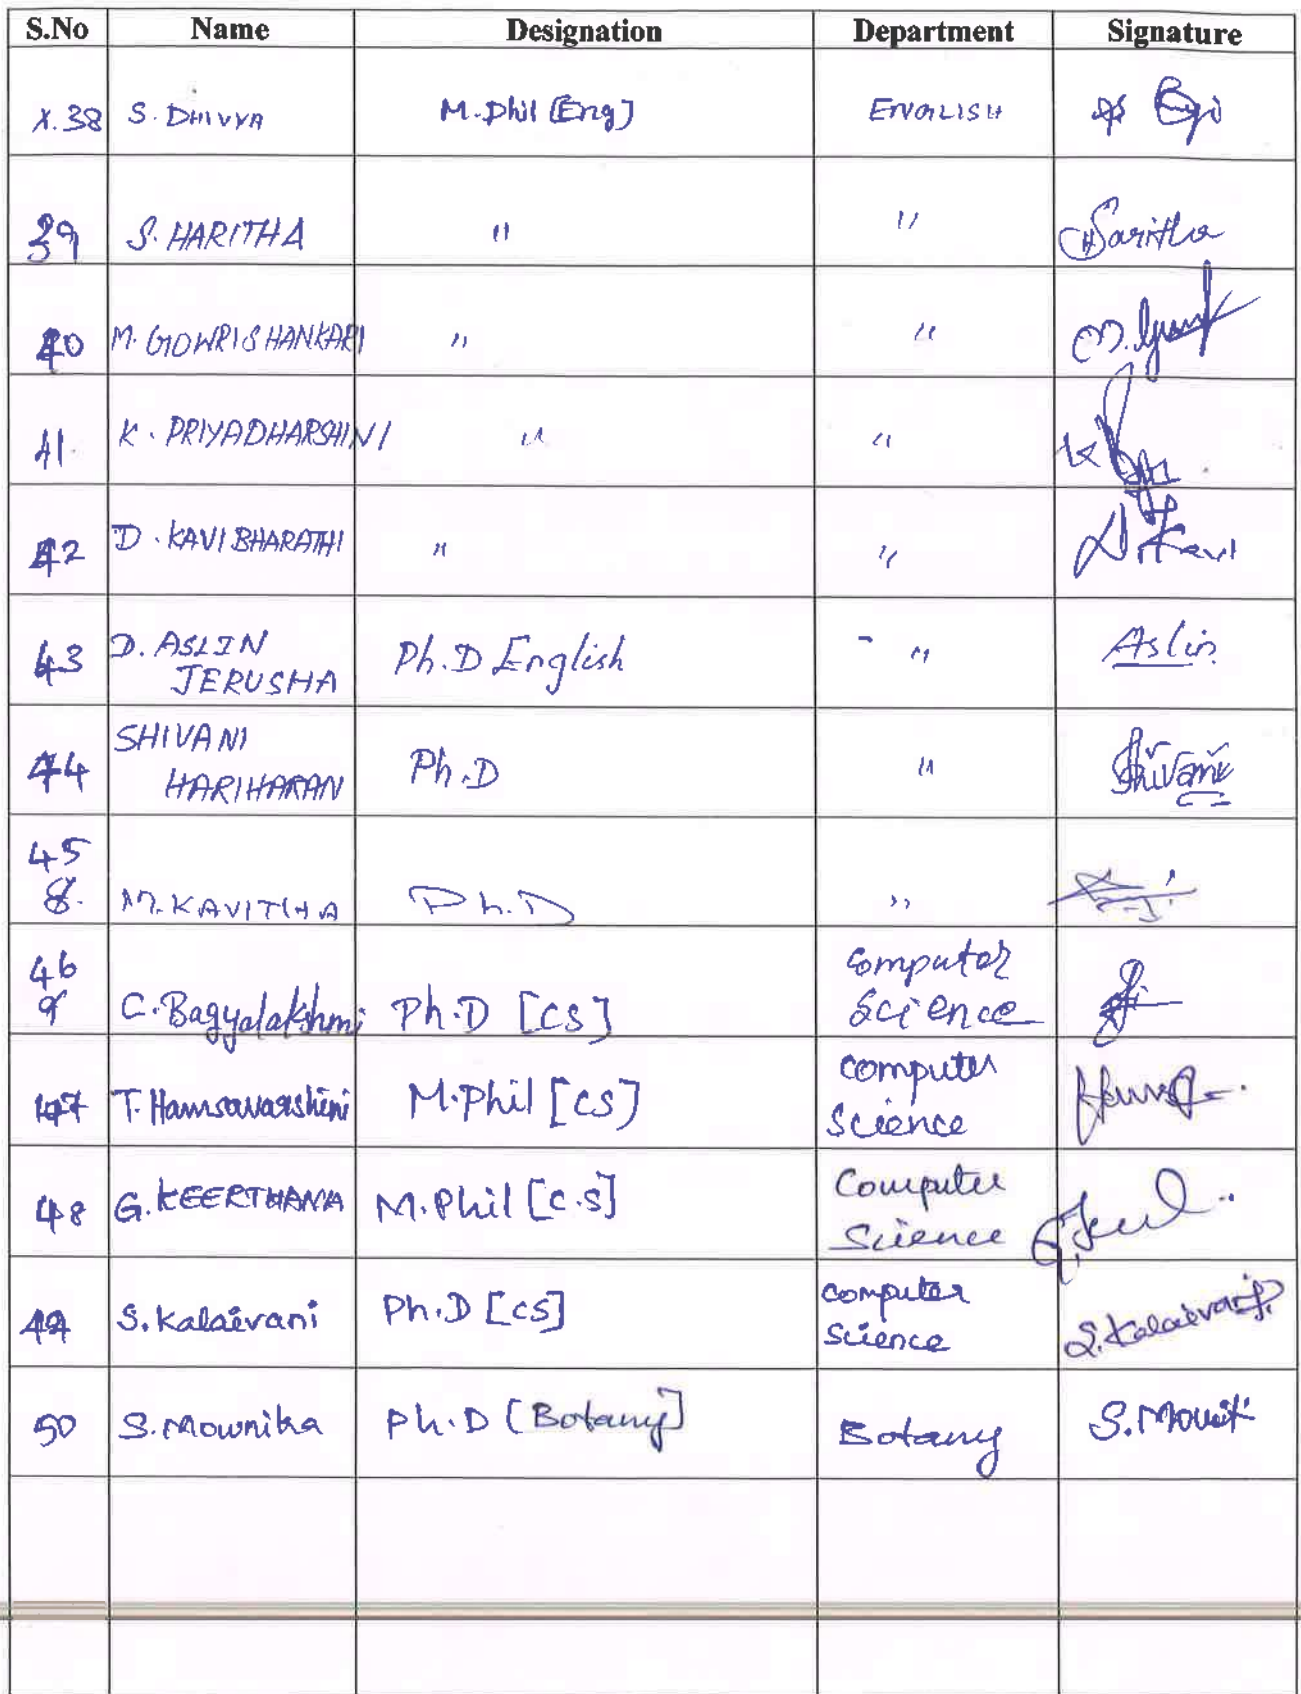 S.No Name Designation Department Signature
38 S. DHIVYA M.Phil (Eng) ENGLISH
39 S. HARITHA " " Haritha
40 M. GOWRISHANKARI " "
41. K. PRIYADHARSHINI " "
42 D. KAVIBHARATHI " " D. Kavi
43 D. ASLIN JERUSHA Ph.D English - " Aslin
44 SHIVANI HARIHARAN Ph.D " Shivani
45 8. M. KAVITHA Ph.D "
46 9 C. Bagyalakshmi Ph.D [CS] Computer Science
47 T. Hamsavarshini M.Phil [CS] Computer Science
48 G. KEERTHANA M.Phil [C.S] Computer Science
49 S. Kalaivani Ph.D [CS] Computer Science S. Kalaivani
50 S. Mownika Ph.D (Botany] Botany